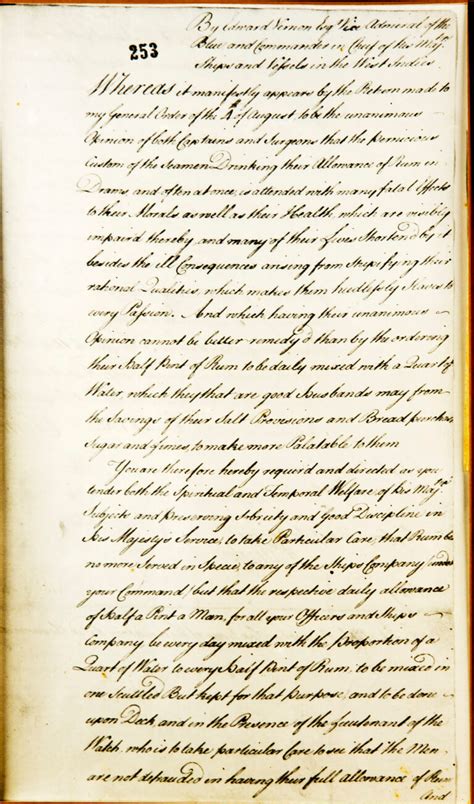 253
By Edward Vernon Esqr. Vice Admiral of the
Blue and Commander in Chief of his Majts.
Ships and Vessels in the West Indies
Whereas it manifestly appears by the Return made to
my General Order of the 4th of August to be the unanimous
Opinion of both Captains and Surgeons that the pernicious
Custom of the Seamen Drinking their Allowance of Rum in
Drams, and often at once, is attended with many fatal Effects
to their Morals as well as their Health which are visibly
impaird thereby and many of their Lives Shortend by it
besides the ill Consequences arising from Stupifying their
rational Qualities, which makes them heedlessly Slaves to
every Passion. And which having their unanimous
Opinion cannot be better remedy'd than by the ordering
their Half Pint of Rum to be daily mixed with a Quart of
Water, which they that are good Husbands may from
the Savings of their Salt Provisions and Bread, purchase
Sugar and Limes, to make more Palatable to them
You are therefore hereby requird and directed as you
tender both the Spiritual and Temporal Welfare of his Majts.
Subjects and preserving Sobriety and Good Discipline in
His Majesty's Service, to take Particular Care, that Rum be
no more Served in Specie, to any of the Ships Company under
your Command, but that the respective daily allowance
of Half a Pint a Man, for all your Officers and Ships
Company be every day mixed with the Proportion of a
Quart of Water to every Half Pint of Rum, to be mixed in
one Scuttled Butt kept for that Purpose, and to be done
upon Deck and in the Presence of the Lieutenant of the
Watch, who is to take particular Care to see that the Men
are not defrauded in having their full Allowance of Rum
And